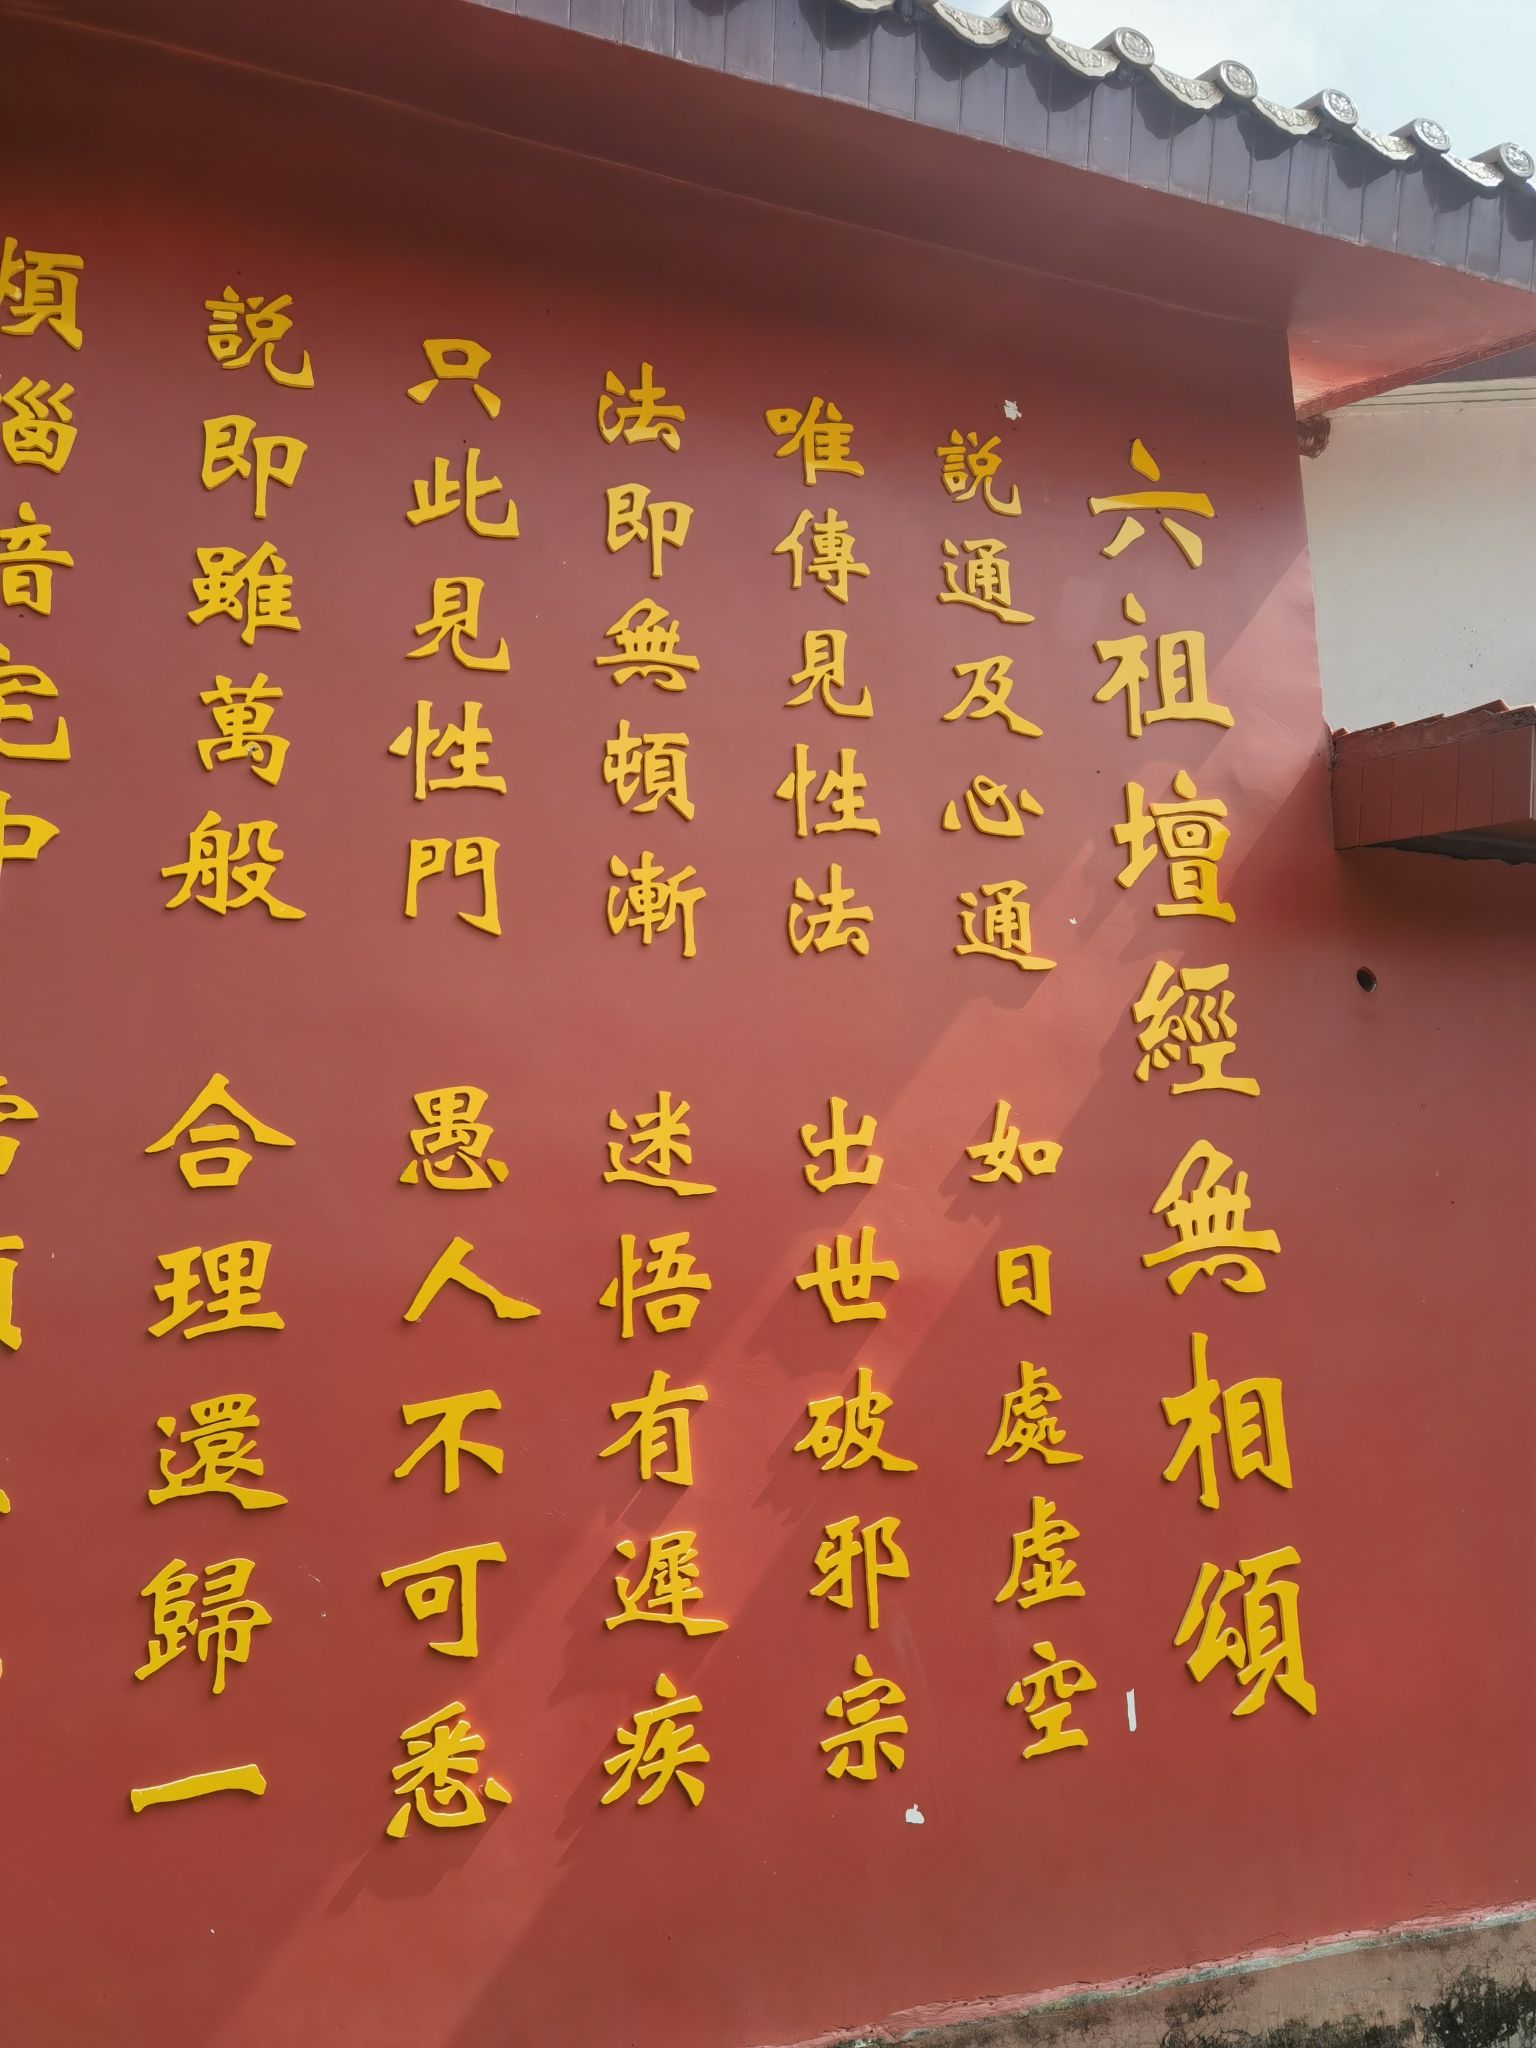 六祖壇經無相頌
説通及心通 如日處虛空
唯傳見性法 出世破邪宗
法即無頓漸 迷悟有遲疾
只此見性門 愚人不可悉
説即雖萬般 合理還歸一
煩惱暗宅中